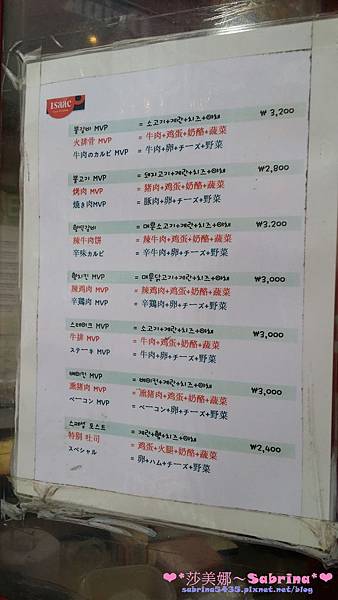 ISAAC
뿔갈비 MVP = 소고기+계란+치즈+야채 ₩3,200
火排骨 MVP = 牛肉+鸡蛋+奶酪+蔬菜
牛肉のカルビ MVP = 牛肉+卵+チーズ+野菜
불고기 MVP = 돼지고기+계란+치즈+야채 ₩2,800
烤肉 MVP = 猪肉+鸡蛋+奶酪+蔬菜
焼き肉MVP = 豚肉+卵+チーズ+野菜
= 매운소고기+계란+치즈+야채 ₩3,200
辣牛肉饼 = 辣牛肉+鸡蛋+奶酪+蔬菜
辛味カルビ = 辛牛肉+卵+チーズ+野菜
핫치킨 MVP = 매운닭고기+계란+치즈+야채 ₩3,000
辣鸡肉 MVP = 辣鸡肉+鸡蛋+奶酪+蔬菜
辛鶏肉 MVP = 辛鶏肉+卵+チーズ+野菜
스테이크 MVP = 소고기+계란+치즈+야채 ₩3,000
牛排 MVP = 牛肉+鸡蛋+奶酪+蔬菜
ステーキ MVP = 牛肉+卵+チーズ+野菜
베이컨 MVP = 베이컨+계란+치즈+야채 ₩3,000
熏猪肉 MVP = 熏猪肉+鸡蛋+奶酪+蔬菜
ベーコン MVP = ベーコン+卵+チーズ+野菜
스페셜 토스트 = 계란+햄+치즈+야채 ₩2,400
特别 吐司 = 鸡蛋+火腿+奶酪+蔬菜
スペシャル = 卵+ハム+チーズ+野菜
❤*莎美娜~Sabrina*❤
sabrina5435.pixnet.net/blog